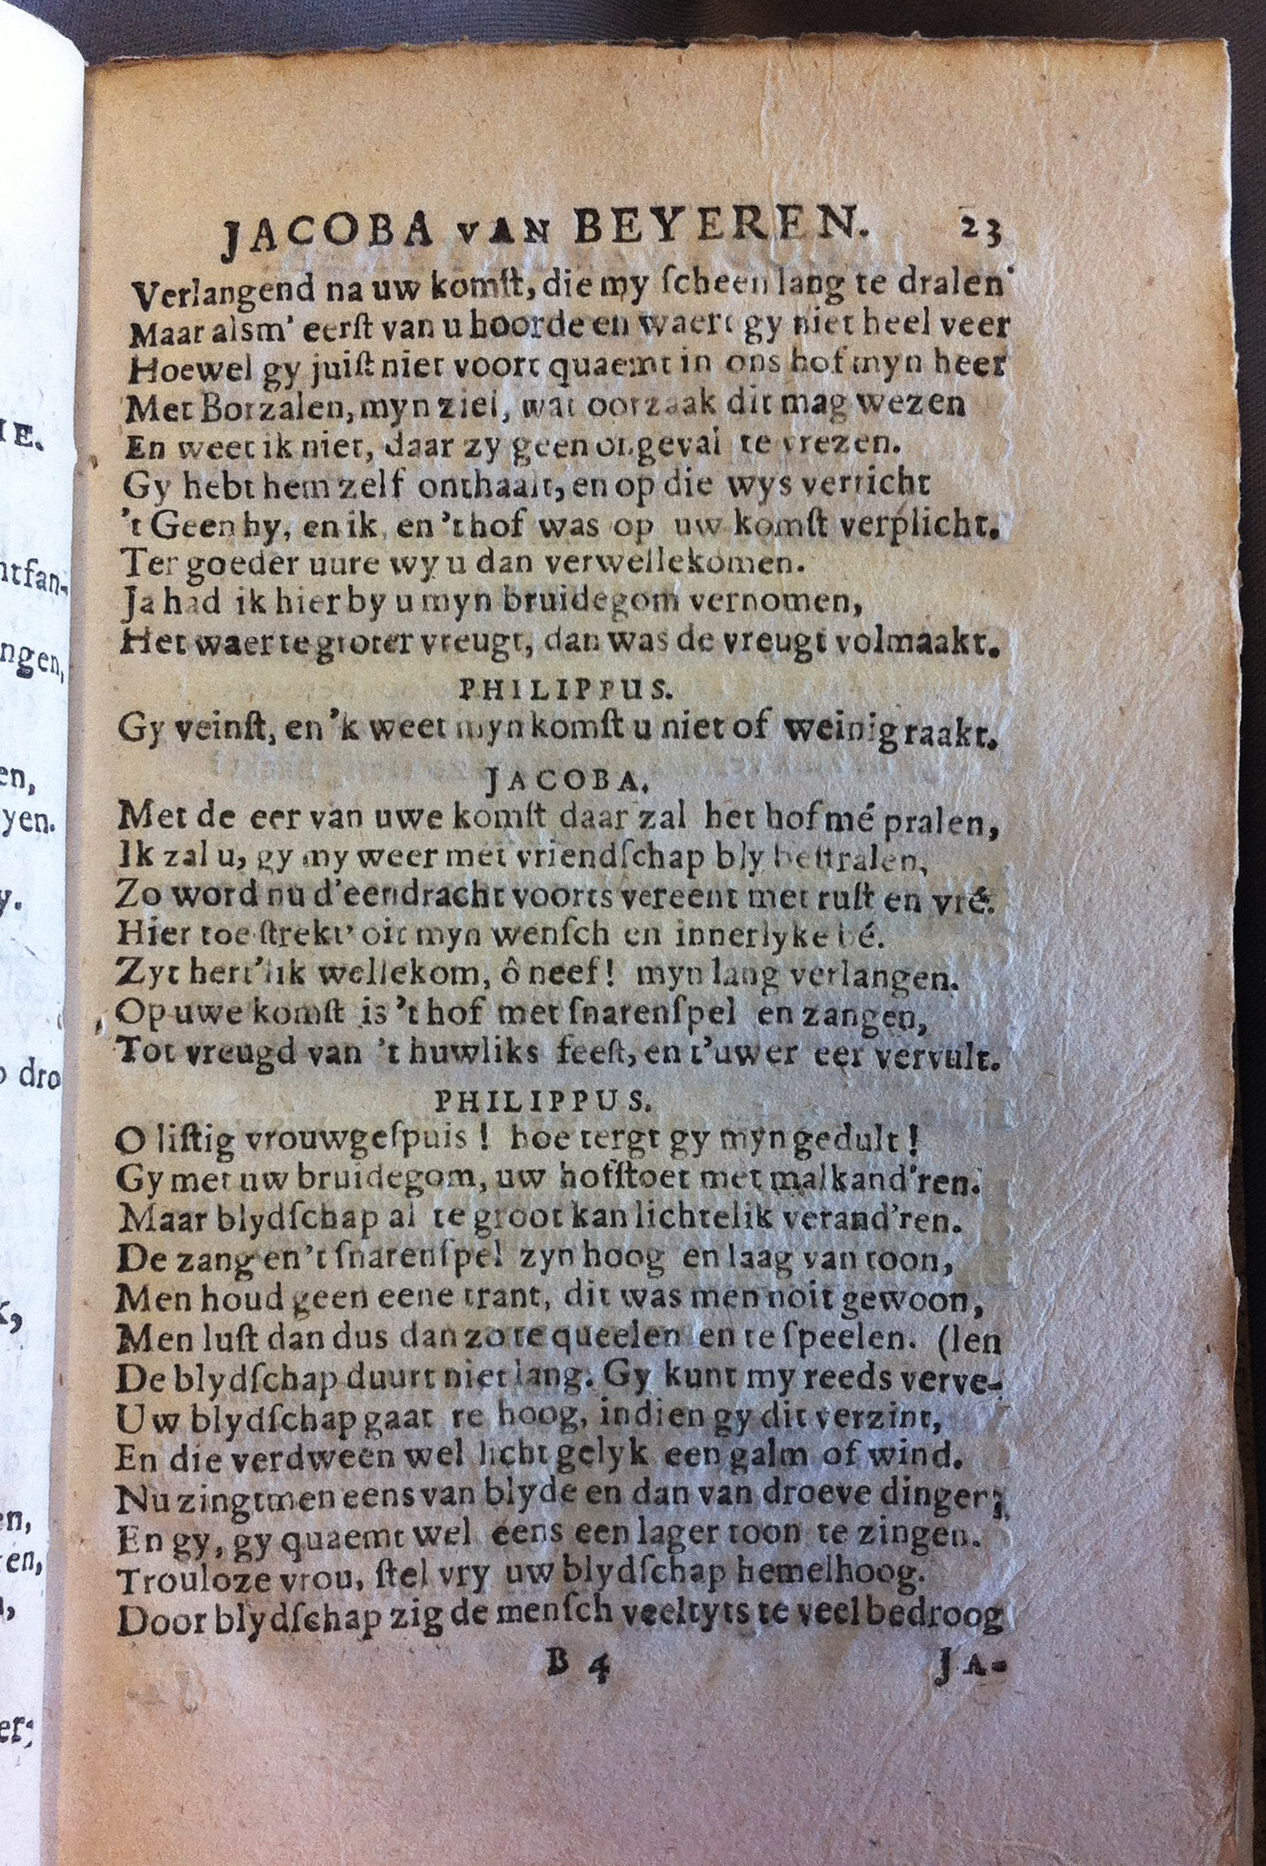 IE.
ntfan-
ngen,
en,
yen.
y.
o dro
k,
en,
ren,
er;
JACOBA VAN BEYEREN. 23
Verlangend na uw komſt, die my ſcheen lang te dralen
Maar alsm' eerſt van u hoorde en waert gy niet heel veer
Hoewel gy juiſt niet voort quaemt in ons hof myn heer
Met Borzalen, myn ziel, wat oorzaak dit mag wezen
En weet ik niet, daar zy geen ongeval te vrezen.
Gy hebt hem zelf onthaalt, en op die wys verricht
't Geen hy, en ik, en 't hof was op uw komſt verplicht.
Ter goeder uure wy u dan verwellekomen.
Ja had ik hier by u myn bruidegom vernomen,
Het waer te groter vreugt, dan was de vreugt volmaakt.
PHILIPPUS.
Gy veinſt, en 'k weet myn komſt u niet of weinig raakt.
JACOBA.
Met de eer van uwe komſt daar zal het hof mé pralen,
Ik zal u, gy my weer met vriendſchap bly beſtralen,
Zo word nu d'eendracht voorts vereent met ruſt en vré.
Hier toe ſtrekt' oit myn wenſch en innerlyke bé.
Zyt hert'lik wellekom, ô neef! myn lang verlangen.
Op uwe komſt is 't hof met ſnarenſpel en zangen,
Tot vreugd van 't huwliks feeſt, en t'uwer eer vervult.
PHILIPPUS.
O liſtig vrouwgeſpuis! hoe tergt gy myn gedult!
Gy met uw bruidegom, uw hofſtoet met malkand'ren.
Maar blydſchap al te groot kan lichtelik verand'ren.
De zang en 't ſnarenſpel zyn hoog en laag van toon,
Men houd geen eene trant, dit was men noit gewoon,
Men luſt dan dus dan zo te queelen en te ſpeelen. (len
De blydſchap duurt niet lang. Gy kunt my reeds verve-
Uw blydſchap gaat te hoog, indien gy dit verzint,
En die verdween wel licht gelyk een galm of wind.
Nu zingt men eens van blyde en dan van droeve dingen;
En gy, gy quaemt wel eens een lager toon te zingen.
Trouloze vrou, ſtel vry uw blydſchap hemelhoog.
Door blydſchap zig de menſch veeltyts te veel bedroog
B 4 JA-